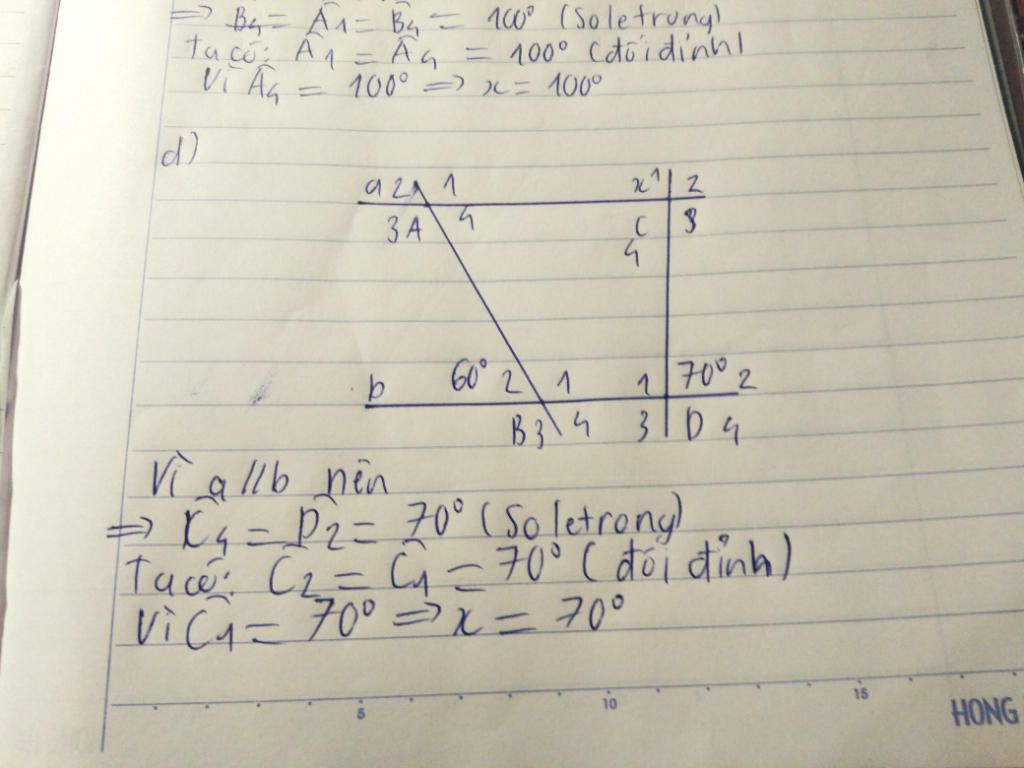 ⇒ B̂₄ = Â₁ = B̂₄ = 100° (So le trong)
Ta có: Â₁ = Â₄ = 100° (đối đỉnh)
Vì Â₄ = 100° ⇒ x = 100°
d)
a 2 1 x 1 2
3 A 4 C 3
4
b 60° 2 1 1 70° 2
B 3 4 3 D 4
Vì a // b nên
⇒ Ĉ₄ = D̂₂ = 70° (So le trong)
Ta có: Ĉ₂ = Ĉ₁ = 70° (đối đỉnh)
Vì Ĉ₁ = 70° ⇒ x = 70°
5 10 15
HONG